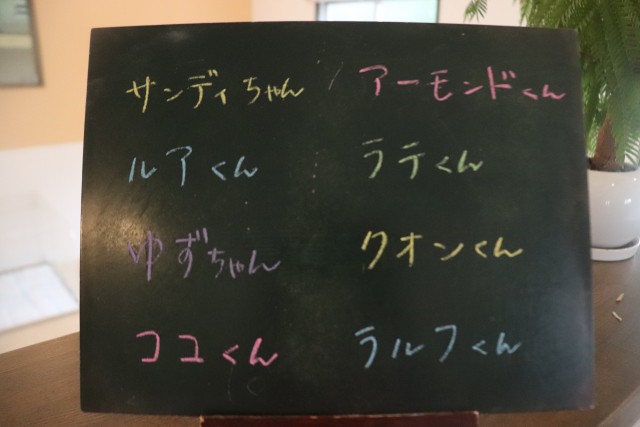 サンディちゃん
アーモンドくん
ルアくん
ラテくん
ゆずちゃん
クオンくん
ココくん
ラルフくん